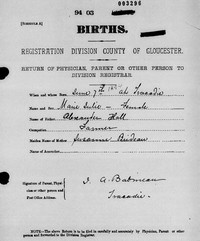 94 03
003296
[SCHEDULE A]
BIRTHS.
REGISTRATION DIVISION COUNTY OF GLOUCESTER.
RETURN OF PHYSICIAN, PARENT OR OTHER PERSON TO
DIVISION REGISTRAR.
When and where Born, June 7th at Tracadie
Name and Sex, Marie Julie - Female
Name of Father, Alexander
Occupation, Farmer
Maiden Name of Mother, Susanne
Name of Accoucheur,
Signature of Parent, Physician or other person and Post Office Address. J. A. Babineau
Tracadie
NOTE—The above Return is to be filled in carefully and accurately by Physician, Parent or other
person and forwarded to the Division Registrar.